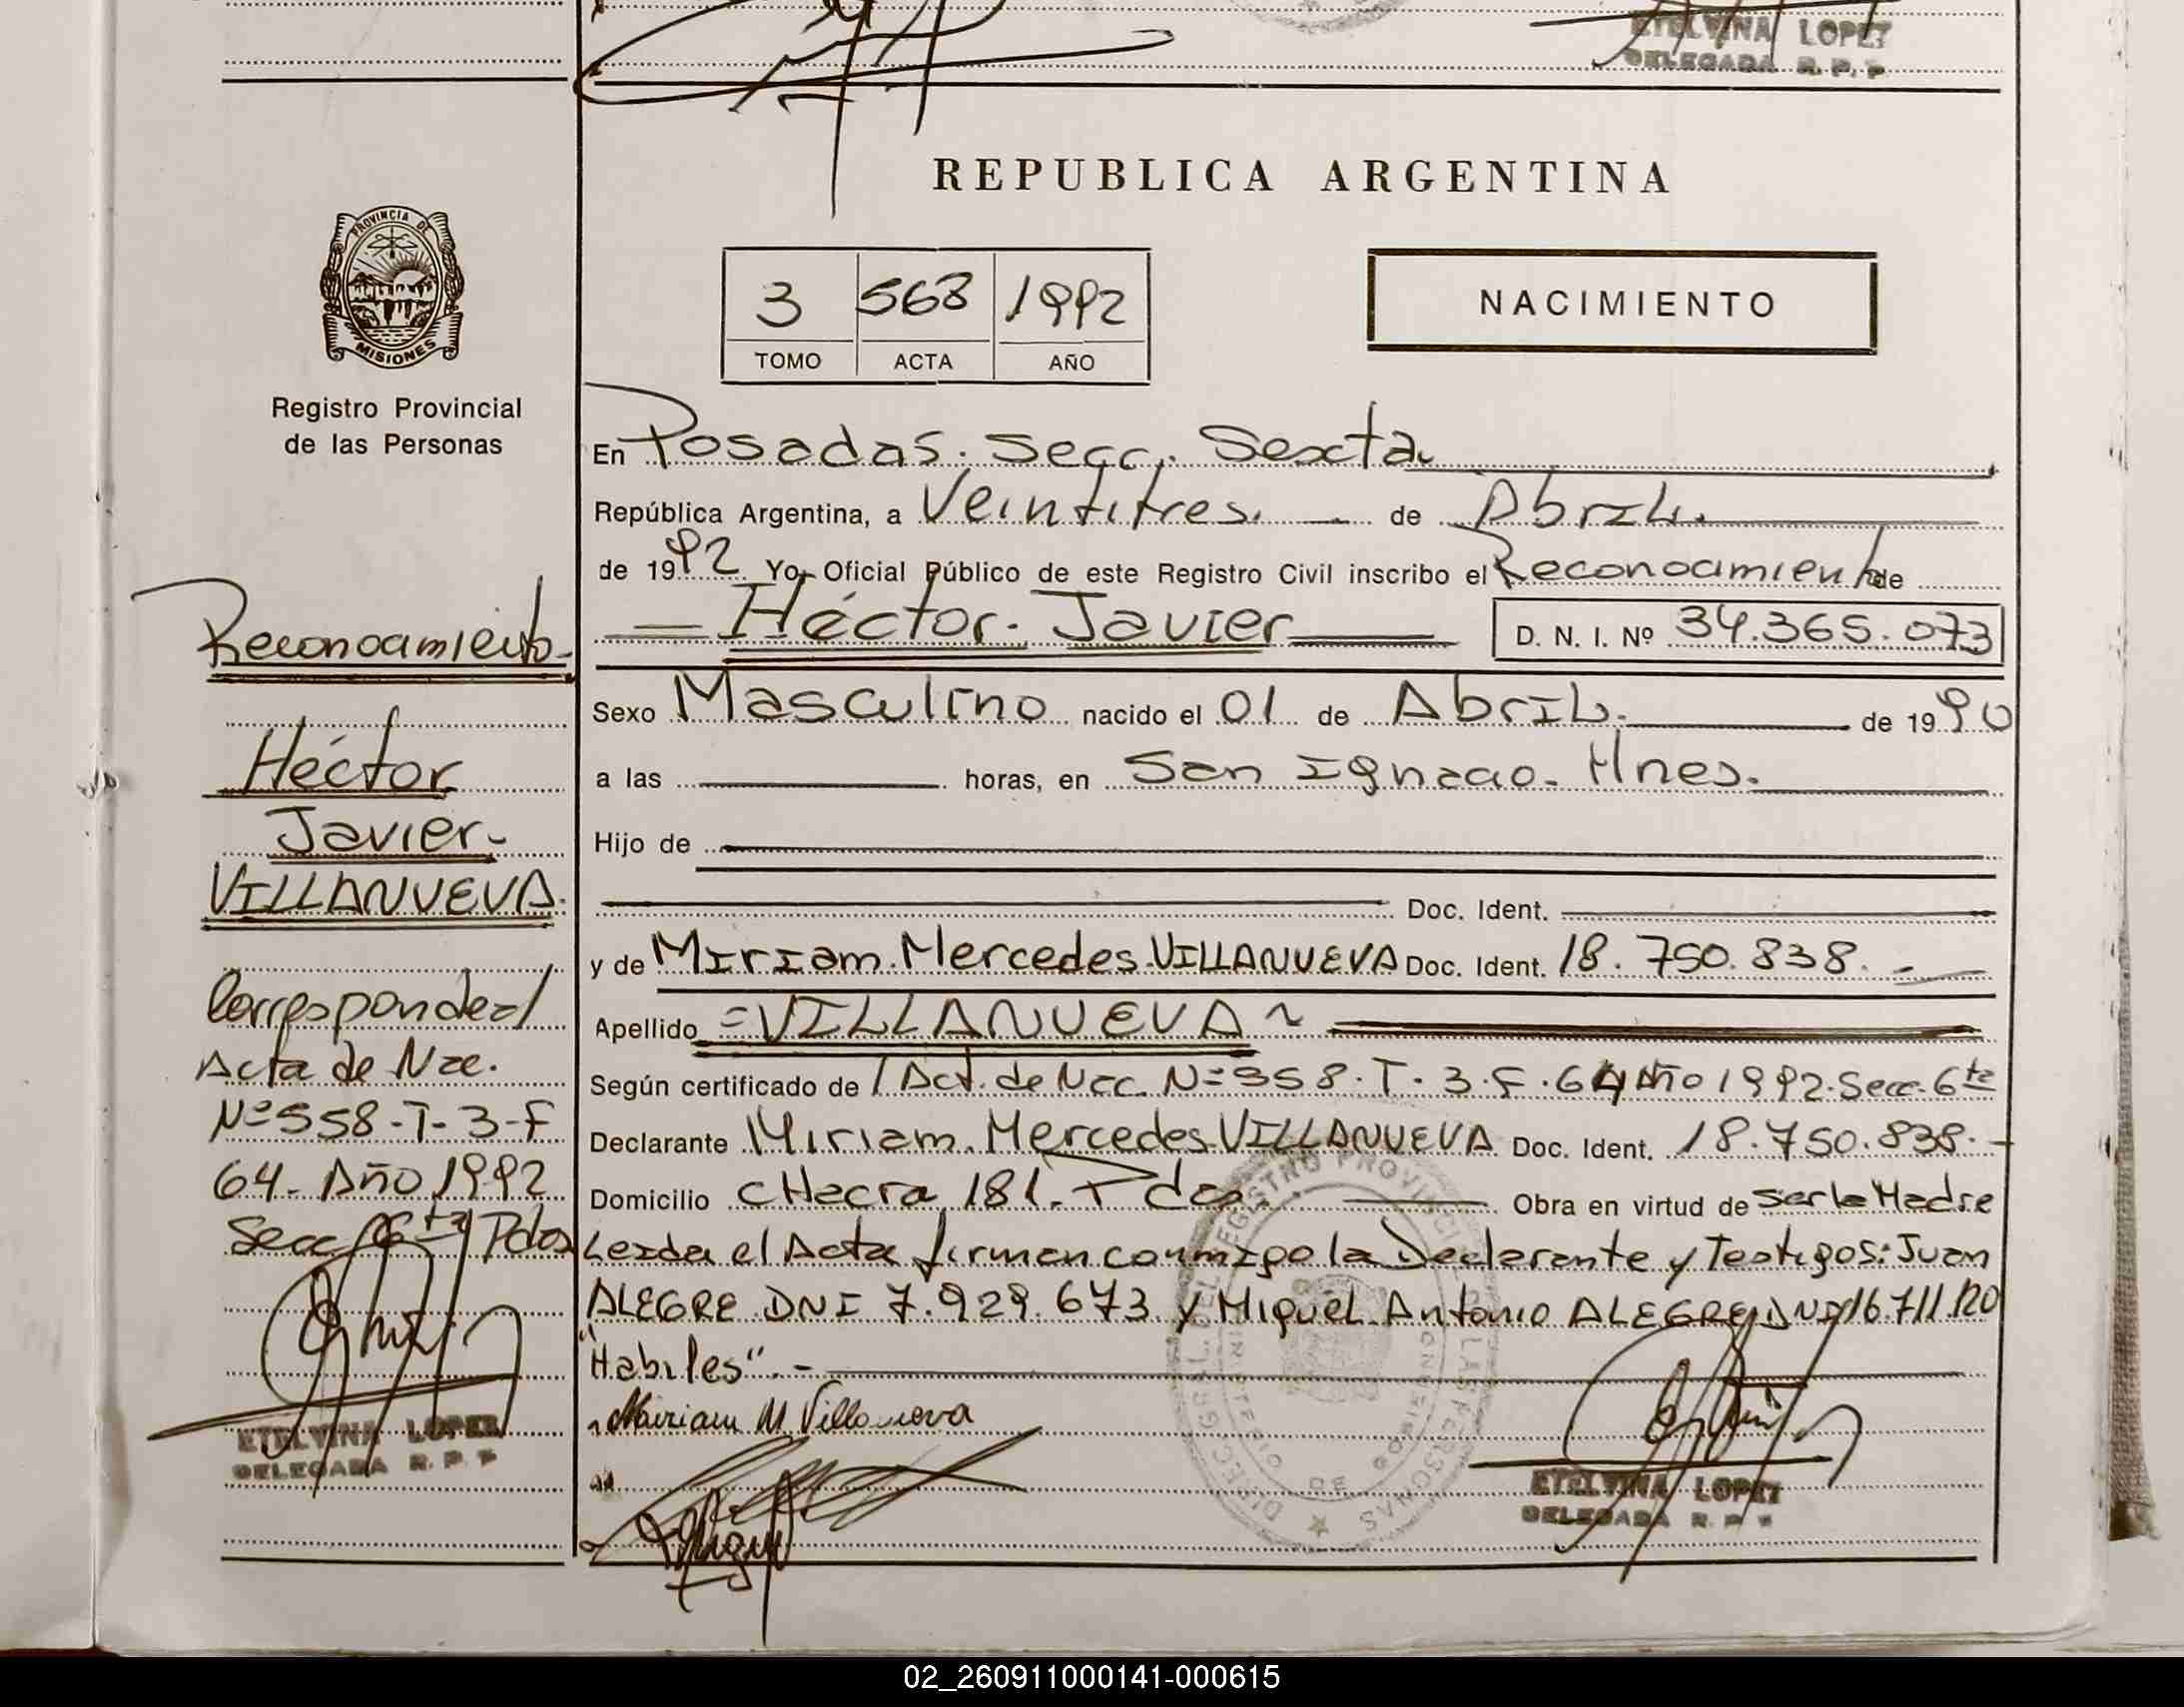 ETELVINA LOPEZ
DELEGADA R. P. P
REPUBLICA ARGENTINA
PROVINCIA DE
MISIONES
Registro Provincial
de las Personas
3 568 1992
TOMO ACTA AÑO
NACIMIENTO
En Posadas. Secc. Sexta.
República Argentina, a Veintitres. de Abril.
de 1992 Yo, Oficial Público de este Registro Civil inscribo el Reconocimiento de
Héctor. Javier D. N. I. Nº 34.365.073
Sexo Masculino nacido el 01 de Abril. de 1990
a las horas, en San Ignacio. Mnes.
Hijo de
Doc. Ident.
y de Miriam. Mercedes VILLANUEVA Doc. Ident. 18.750.838.
Apellido =VILLANUEVA~
Según certificado de / Act. de Nac. Nº 558. T. 3. F. 64 Año 1992. Secc. 6ta
Declarante Miriam. Mercedes VILLANUEVA Doc. Ident. 18.750.838.-
Domicilio CHacra 181. Pdas. Obra en virtud de ser la Madre
Leida el Acta firman conmigo la Declarante y Testigos: Juan
ALEGRE DNI 7.929.673 y Miguel Antonio ALEGRE DNI 16.711.120
"Habiles".-
Miriam M Villanueva
ETELVINA LOPEZ
DELEGADA R. P. P
Reconocimiento-
Héctor
Javier-
VILLANUEVA.
Corresponde al
Acta de Nac.
Nº 558-T-3-F
64- Año 1992
Secc 6ta Pdas
ETELVINA LOPEZ
DELEGADA R. P. P
DIREC. GRAL. DEL REGISTRO PROVINCIAL DE LAS PERSONAS
MINISTERIO DE GOBIERNO
02_260911000141-000615